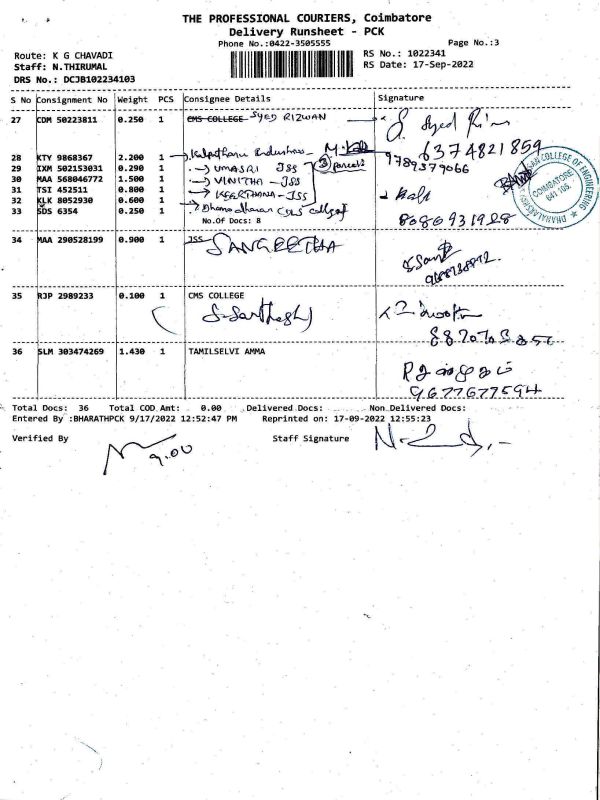 THE PROFESSIONAL COURIERS, Coimbatore
Delivery Runsheet - PCK
Phone No.:0422-3505555 Page No.:3
Route: K G CHAVADI RS No.: 1022341
Staff: N.THIRUMAL RS Date: 17-Sep-2022
DRS No.: DCJB102234103
S No Consignment No Weight PCS Consignee Details Signature
27 CDM 50223811 0.250 1 CMS COLLEGE SYED RIZWAN
6374821859
28 KTY 9868367 2.200 1 M. 9789379066
29 IXM 502153031 0.290 1 UMASRI JSS 3 parcels
30 MAA 568046772 1.500 1 VINITHA - JSS
31 TSI 452511 0.800 1 KEERTHANA - JSS
32 KLK 8052930 0.600 1 Dhamodharan CMS college
33 SDS 6354 0.250 1 8080931928
No.Of Docs: 8
COLLEGE OF ENGINEERING
COIMBATORE
641 105
34 MAA 290528199 0.900 1 JSS SANGEETHA
35 RJP 2989233 0.100 1 CMS COLLEGE
36 SLM 303474269 1.430 1 TAMILSELVI AMMA
9677677594
Total Docs: 36 Total COD Amt: 0.00 Delivered Docs: Non Delivered Docs:
Entered By :BHARATHPCK 9/17/2022 12:52:47 PM Reprinted on: 17-09-2022 12:55:23
Verified By 9.00 Staff Signature